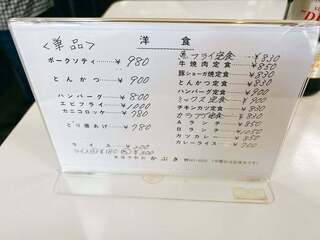 洋食
<単品>
ポークソティ ¥980
とんかつ ¥900
ハンバーグ ¥800
エビフライ ¥1000
カニコロッケ ¥780
とり唐あげ ¥780
ライス
魚フライ定食 ¥830
牛焼肉定食 ¥850
豚ショーガ焼定食 ¥830
とんかつ定食 ¥830
ハンバーグ定食 ¥900
ミックス定食 ¥900
チキンカツ定食 ¥830
カラアゲ定食 ¥810
Aランチ ¥850
Bランチ
カツカレー ¥850
カレーライス ¥700
かぶき